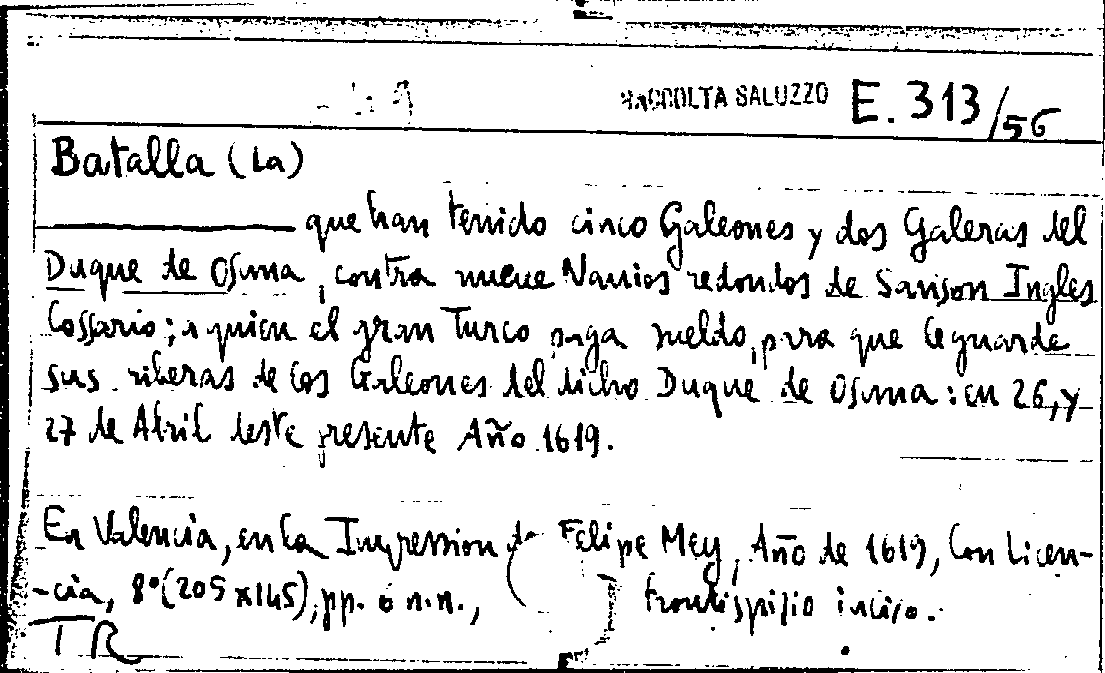 RACCOLTA SALUZZO E. 313/56
Batalla (La)
que han tenido cinco Galeones y dos Galeras del
Duque de Osuna, contra nueve Nauios redondos de Sanson Ingles
Cossario; a quien el gran Turco paga sueldo, para que le guarde
sus riberas de los Galeones del dicho Duque de Osuna: en 26, y
27 de Abril deste presente Año 1619.
En Valencia, en la Impression de Felipe Mey, Año de 1619, Con Licen-
-cia, 8º (205 x 145), pp. 6 n.n., frontispizio inciso.
TR